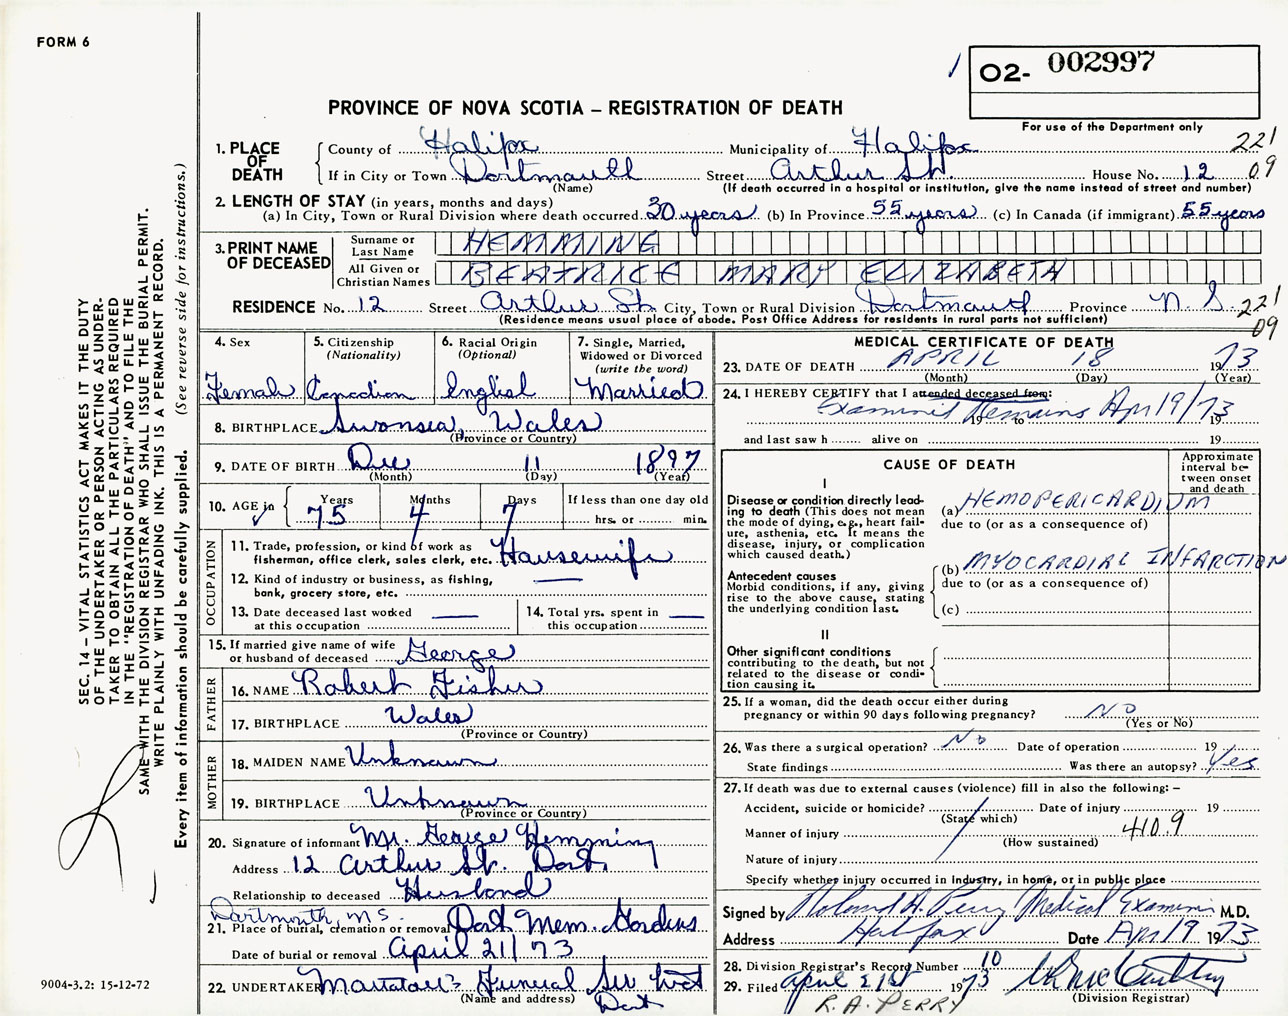 FORM 6
1
O2- 002997
For use of the Department only
PROVINCE OF NOVA SCOTIA – REGISTRATION OF DEATH
221
09
1. PLACE OF DEATH
County of Halifax Municipality of Halifax
If in City or Town Dartmouth Street Arthur St. House No. 12
(Name) (If death occurred in a hospital or institution, give the name instead of street and number)
2. LENGTH OF STAY (in years, months and days)
(a) In City, Town or Rural Division where death occurred 30 years (b) In Province 55 years (c) In Canada (if immigrant) 55 years
3. PRINT NAME OF DECEASED
Surname or Last Name HEMMING
All Given or Christian Names BEATRICE MARY ELIZABETH
RESIDENCE No. 12 Street Arthur St. City, Town or Rural Division Dartmouth Province N. S.
221
09
(Residence means usual place of abode. Post Office Address for residents in rural parts not sufficient)
4. Sex
Female
5. Citizenship
(Nationality)
Canadian
6. Racial Origin
(Optional)
English
7. Single, Married,
Widowed or Divorced
(write the word)
Married
8. BIRTHPLACE Swonsea, Wales
(Province or Country)
9. DATE OF BIRTH Dec 11 1897
(Month) (Day) (Year)
10. AGE in
Years Months Days If less than one day old
75 4 7 hrs. or min.
OCCUPATION
11. Trade, profession, or kind of work as
fisherman, office clerk, sales clerk, etc. Housewife
12. Kind of industry or business, as fishing,
bank, grocery store, etc. —
13. Date deceased last worked
at this occupation —
14. Total yrs. spent in
this occupation —
15. If married give name of wife
or husband of deceased George
FATHER
16. NAME Robert Fisher
17. BIRTHPLACE Wales
(Province or Country)
MOTHER
18. MAIDEN NAME Unknown
19. BIRTHPLACE Unknown
(Province or Country)
20. Signature of informant Mr. George Hemming
Address 12 Arthur St. Dart.
Relationship to deceased Husband
Dartmouth, N.S.
21. Place of burial, cremation or removal Dart Mem. Gardens
Date of burial or removal April 21/73
22. UNDERTAKER Funeral
(Name and address)
Dart
MEDICAL CERTIFICATE OF DEATH
23. DATE OF DEATH APRIL 18 1973
(Month) (Day) (Year)
24. I HEREBY CERTIFY that I attended deceased from:
Examined Remains Apr 19/73
19 to 19
and last saw h alive on 19
CAUSE OF DEATH
Approximate
interval be-
tween onset
and death
I
Disease or condition directly lead-
ing to death (This does not mean
the mode of dying, e.g., heart fail-
ure, asthenia, etc. It means the
disease, injury, or complication
which caused death.)
(a) HEMOPERICARDIUM
due to (or as a consequence of)
Antecedent causes
Morbid conditions, if any, giving
rise to the above cause, stating
the underlying condition last.
(b) MYOCARDIAL INFARCTION
due to (or as a consequence of)
(c)
II
Other significant conditions
contributing to the death, but not
related to the disease or condi-
tion causing it.
25. If a woman, did the death occur either during
pregnancy or within 90 days following pregnancy? NO
(Yes or No)
26. Was there a surgical operation? No Date of operation 19
State findings Was there an autopsy? Yes
27. If death was due to external causes (violence) fill in also the following: –
Accident, suicide or homicide? Date of injury 19
(State which)
Manner of injury 410.9
(How sustained)
Nature of injury
Specify whether injury occurred in Industry, in home, or in public place
Signed by Roland A. Perry Medical Examiner M.D.
Address Halifax Date Apr 19 1973
28. Division Registrar's Record Number 10
29. Filed April 21st 1973
(Division Registrar)
R. A. PERRY
SEC. 14 – VITAL STATISTICS ACT MAKES IT THE DUTY
OF THE UNDERTAKER OR PERSON ACTING AS UNDER-
TAKER TO OBTAIN ALL THE PARTICULARS REQUIRED
IN THE "REGISTRATION OF DEATH" AND TO FILE THE
SAME WITH THE DIVISION REGISTRAR WHO SHALL ISSUE THE BURIAL PERMIT.
WRITE PLAINLY WITH UNFADING INK. THIS IS A PERMANENT RECORD.
Every item of information should be carefully supplied. (See reverse side for instructions.)
9004-3.2: 15-12-72